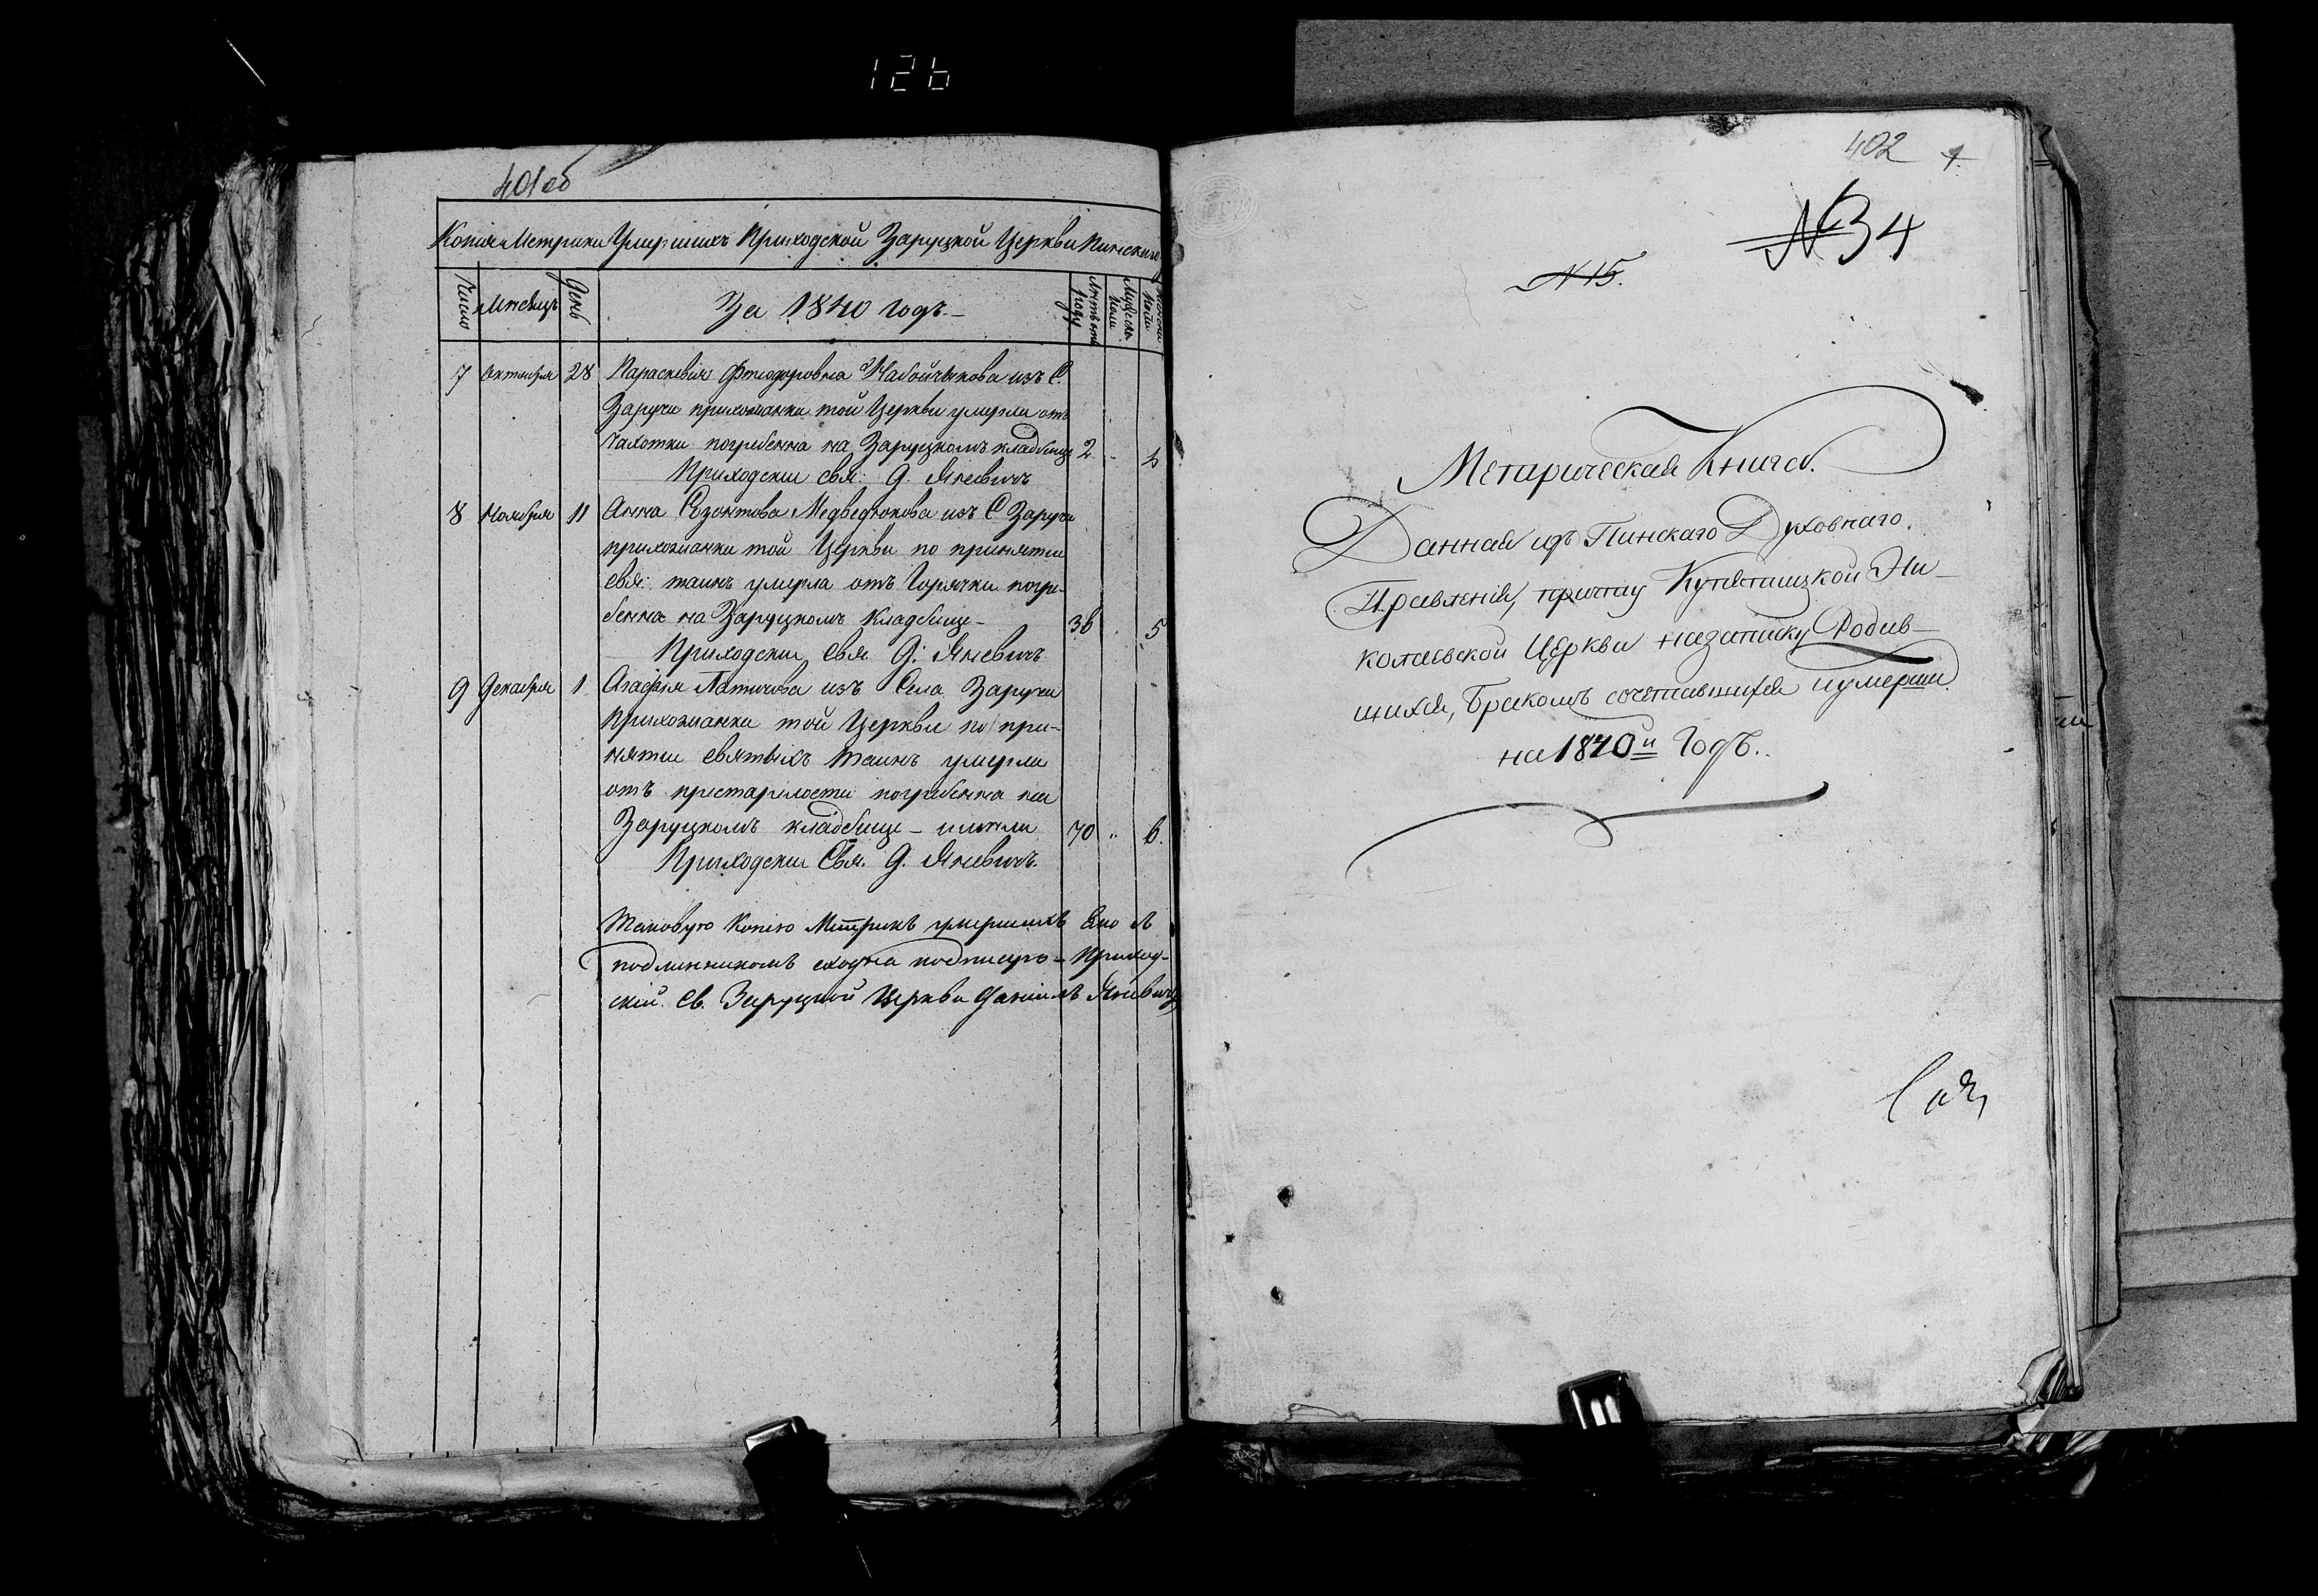 126
401 об
Копія Метрики Умершихъ Приходской Заруцкой Церкви Пинскаго
Число
Месяцъ
День
За 1840 годъ.
Лѣтъ отъ роду
Мужеска пола
Женска пола
7 Октября 28 Параскевія Фтеодоровна изъ С.
Заручи прихожанка той Церкви умерла отъ
Чахотки погребенна на Заруцкомъ кладбище 2 .. 4
Приходскiи свя: Д. Яневичъ
8 Ноября 11 Анна Созонтова Медведзюкова изъ С Заручи
прихожанка той Церкви по принятии
свя: таинъ умерла отъ Горячки погре-
бенна на Заруцкомъ Кладбище - 36 . 5
Приходскiи Свя Д. Яневичъ
9 Декабря 1 Агафiя изъ Села Заручи
Прихожанка той Церкви по при-
нятiи святыхъ таинъ умерла
отъ престарелости погребенна на
Заруцкомъ кладбище - 70 .. 6.
Приходскiи Свя. Д. Яневичъ.
Таковую Копiю Метрикъ умершихъ
подлинникомъ сходна подписую - Приход-
скiй. Св. Заруцкой Церкви Данiилъ Яневичъ
402
N 34
N 15.
Метрическая Книга.
Данная изъ Пинскаго Духовнаго
Правленiя, причту Купятицкой Ни-
колаевской Церкви на записку Родив-
шихся, Бракомъ сочетавшихся и умерши.
на 1840й Годъ.